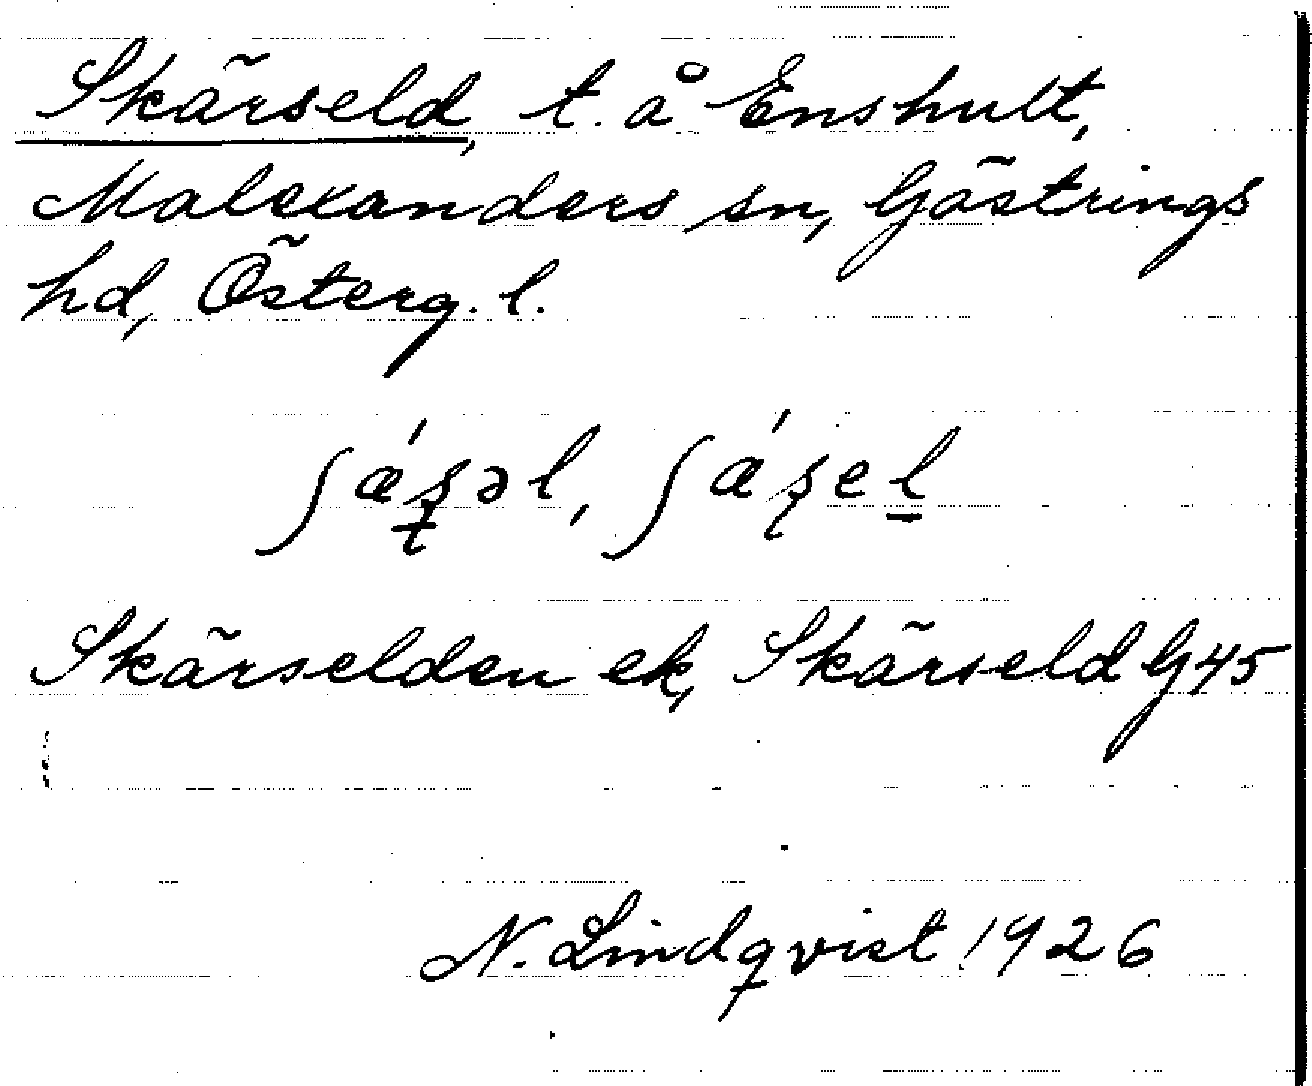 Skärseld, t. å Enshult,
Malexanders sn, Göstrings
hd, Österg. l.
ʃǽʂəl, ʃáʂel
Skärselden ek, Skärseld G45
N. Lindqvist 1926